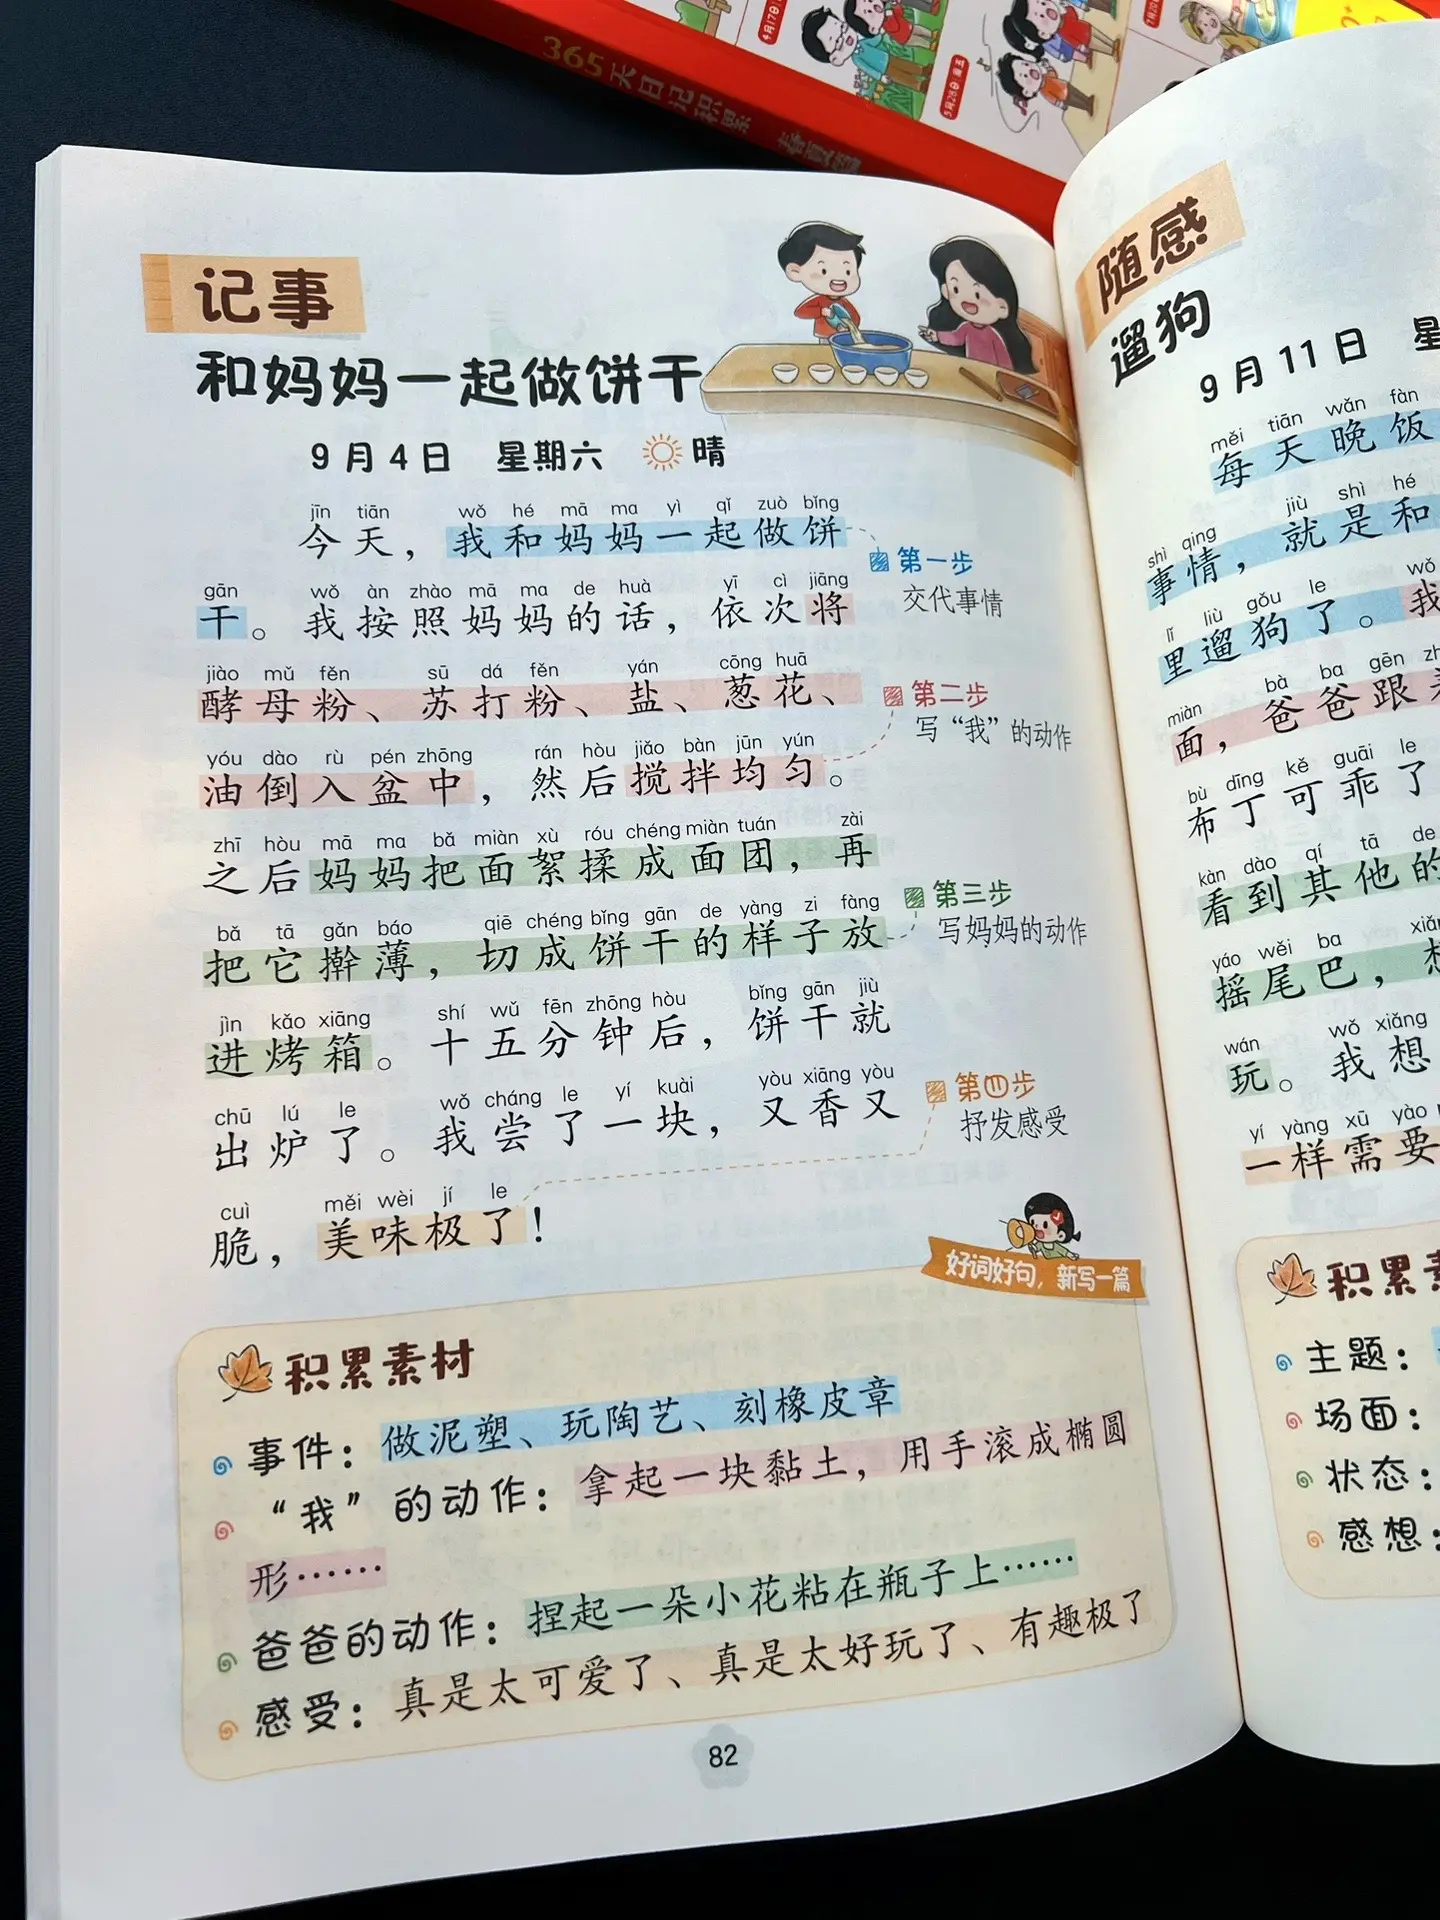 365天日记积累 春夏篇
4月17日
5月28日 星期五
7月20
记事
和妈妈一起做饼干
9月4日 星期六 晴
jīn tiān wǒ hé mā ma yì qǐ zuò bǐng
今天，我和妈妈一起做饼
第一步
交代事情
gān wǒ àn zhào mā ma de huà yī cì jiāng
干。我按照妈妈的话，依次将
jiào mǔ fěn sū dá fěn yán cōng huā
酵母粉、苏打粉、盐、葱花、
第二步
写“我”的动作
yóu dào rù pén zhōng rán hòu jiǎo bàn jūn yún
油倒入盆中，然后搅拌均匀。
zhī hòu mā ma bǎ miàn xù róu chéng miàn tuán zài
之后妈妈把面絮揉成面团，再
第三步
写妈妈的动作
bǎ tā gǎn báo qiē chéng bǐng gān de yàng zi fàng
把它擀薄，切成饼干的样子放
jìn kǎo xiāng shí wǔ fēn zhōng hòu bǐng gān jiù
进烤箱。十五分钟后，饼干就
chū lú le wǒ cháng le yí kuài yòu xiāng yòu
出炉了。我尝了一块，又香又
第四步
抒发感受
cuì měi wèi jí le
脆，美味极了！
好词好句，新写一篇
积累素材
事件：做泥塑、玩陶艺、刻橡皮章
“我”的动作：拿起一块黏土，用手滚成椭圆
形……
爸爸的动作：捏起一朵小花粘在瓶子上……
感受：真是太可爱了、真是太好玩了、有趣极了
82
随感
遛狗
9月11日 星
měi tiān wǎn fàn
每天晚饭
shì qing jiù shì hé
事情，就是和
lǐ liù gǒu le wǒ
里遛狗了。我
miàn bà ba gēn
面，爸爸跟
bù dīng kě guāi le
布丁可乖了
kàn dào qí tā de
看到其他的
yáo wěi ba xiǎng
摇尾巴，想
wán wǒ xiǎng
玩。我想
yí yàng xū yào
一样需要
积累素
主题：
场面：
状态：
感想：